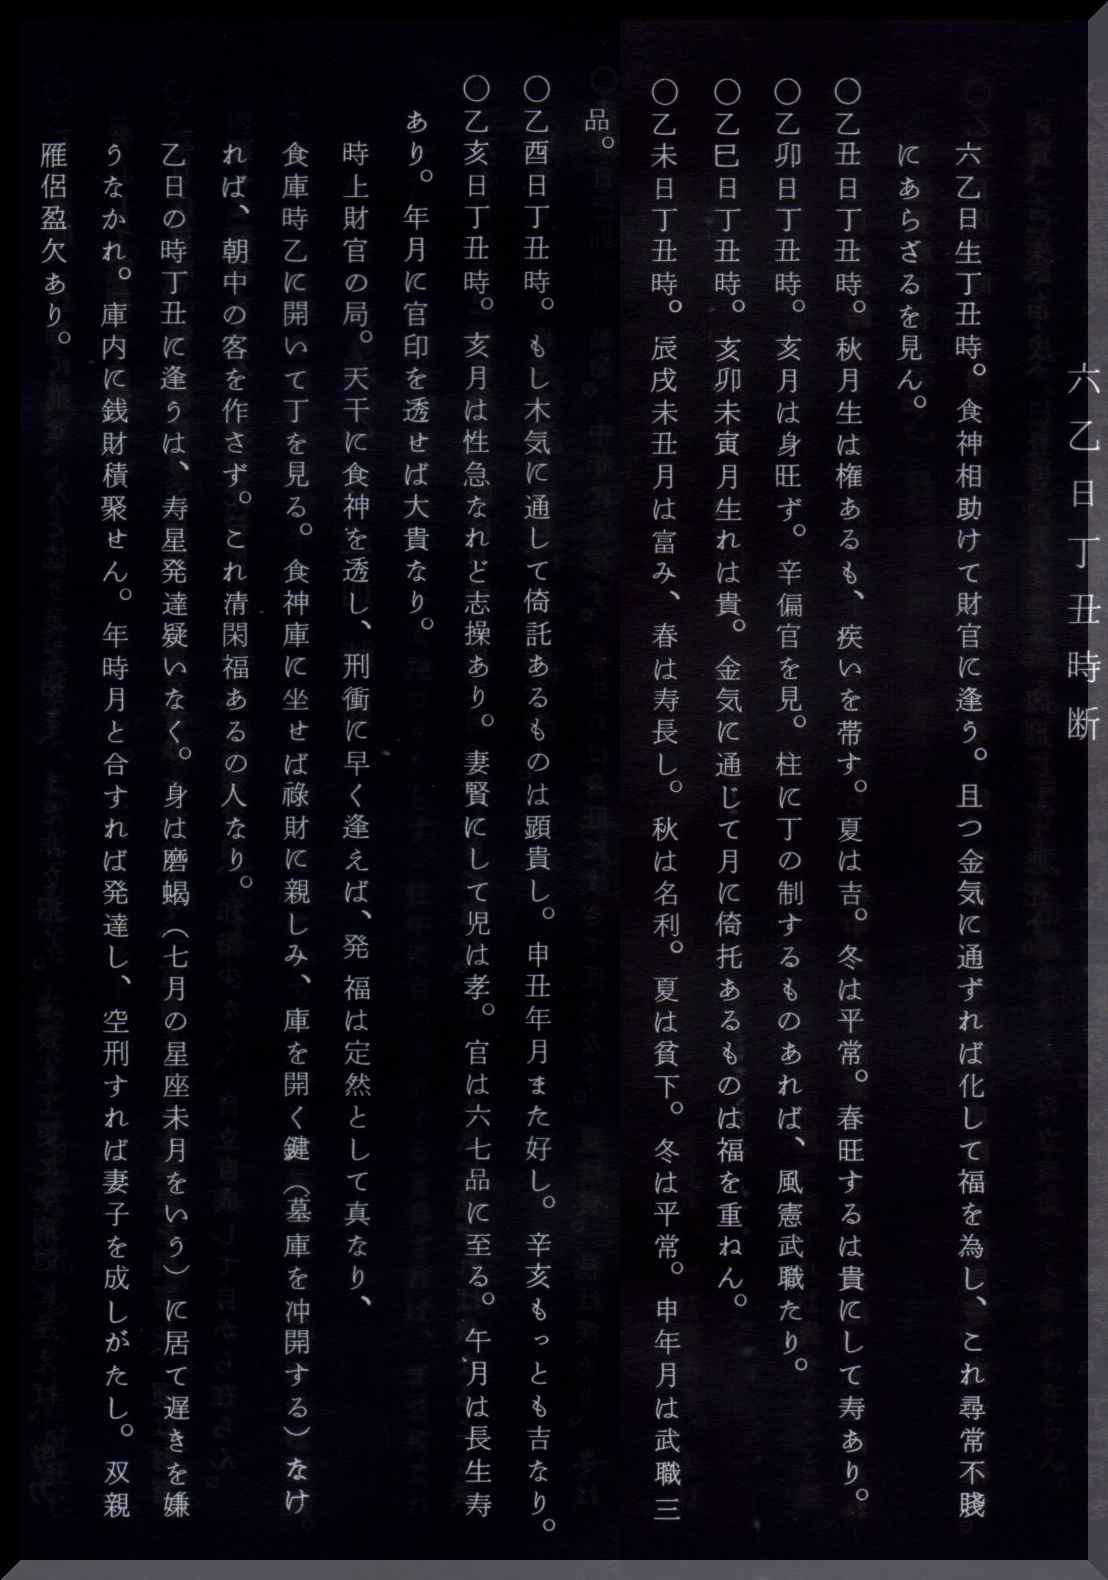 六乙日丁丑時断
六乙日生丁丑時。食神相助けて財官に逢う。且つ金気に通ずれば化して福を為し、これ尋常不賤
にあらざるを見ん。
〇乙丑日丁丑時。秋月生は権あるも、疾いを帯す。夏は吉。冬は平常。春旺するは貴にして寿あり。
〇乙卯日丁丑時。亥月は身旺ず。辛偏官を見。柱に丁の制するものあれば、風憲武職たり。
〇乙巳日丁丑時。亥卯未寅月生れは貴。金気に通じて月に倚托あるものは福を重ねん。
〇乙未日丁丑時。辰戌未丑月は富み、春は寿長し。秋は名利。夏は貧下。冬は平常。申年月は武職三
品。
〇乙酉日丁丑時。もし木気に通して倚託あるものは顕貴し。申丑年月また好し。辛亥もっとも吉なり。
〇乙亥日丁丑時。亥月は性急なれど志操あり。妻賢にして児は孝。官は六七品に至る。午月は長生寿
あり。年月に官印を透せば大貴なり。
時上財官の局。天干に食神を透し、刑衝に早く逢えば、発福は定然として真なり、
食庫時乙に開いて丁を見る。食神庫に坐せば祿財に親しみ、庫を開く鍵（墓庫を冲開する）なけ
れば、朝中の客を作さず。これ清閑福あるの人なり。
乙日の時丁丑に逢うは、寿星発達疑いなく。身は磨蝎（七月の星座未月をいう）に居て遅きを嫌
うなかれ。庫内に銭財積聚せん。年時月と合すれば発達し、空刑すれば妻子を成しがたし。双親
雁侶盈欠あり。